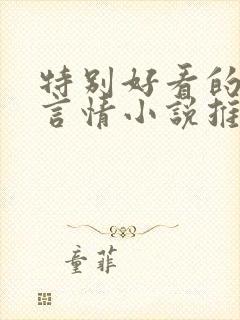 特别好看的
言情小说推
童菲